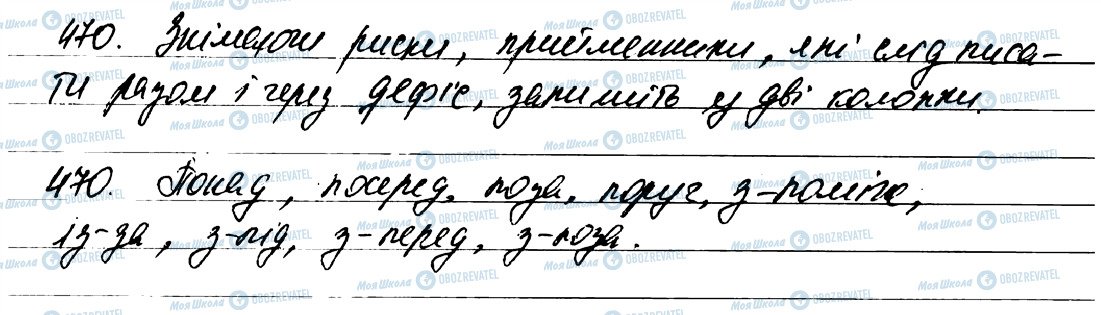 470. Знімаючи риски, прийменники, які слід писа-
ти разом і через дефіс, запишіть у дві колонки.
470. Понад, посеред, поза, поруч, з-поміж,
із-за, з-під, з-перед, з-поза.